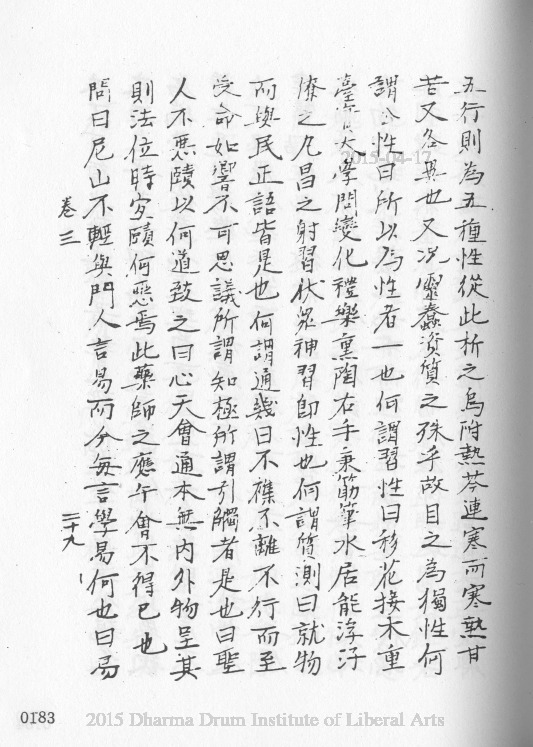 五行則為五種性從此析之烏附熱芩連寒而寒熱甘
苦又各異也又況靈蠢資質之殊乎故目之為獨性何
謂公性曰所以為性者一也何謂習性曰移花接木重
臺實大學問變化禮樂熏陶右手秉筋筆水居能浮汓
僚之九昌之射習伏眾神習即性也何謂質測曰就物
而與民正語皆是也何謂通幾曰不襍不離不行而至
受命如響不可思議所謂知極所謂引觸者是也曰聖
人不惡賾以何道致之曰心天會通本無內外物呈其
則法位時宜賾何惡焉此藥師之應午會不得已也
問曰尼山不輕與門人言易而今每言學易何也曰易
卷三
二十九
2015-04-17
0183
2015 Dharma Drum Institute of Liberal Arts